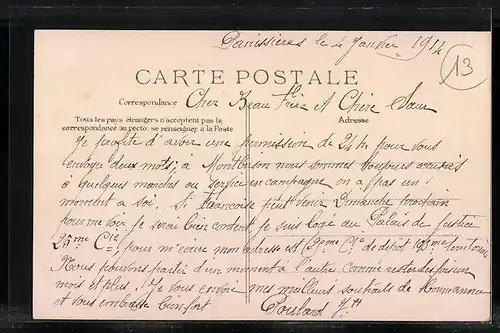 Panissières le 4 Janvier 1914
13
CARTE POSTALE
Correspondance Cher Beau Frère et Chère Sœur
Tous les pays étrangers n'acceptent pas la
correspondance au recto, se renseigner à la Poste
Adresse
Je profite d'avoir une permission de 24 h pour vous
envoyer deux mots; à Montbrison nous sommes toujours occupés
à quelques marches ou service en campagne on a pas un
moment à soi. Si Francoise peut venir Dimanche prochain
pour me voir je serai bien content je suis logé au Palais de Justice
23ème Cie pour m'ecrire mon adresse est Cie de dépot territoriale
Nous pouvons partir d'un moment à l'autre comme rester des fois un
mois et plus. Je vous envoie mes meilleurs souhaits de
et vous embrasse bien fort
Poulard